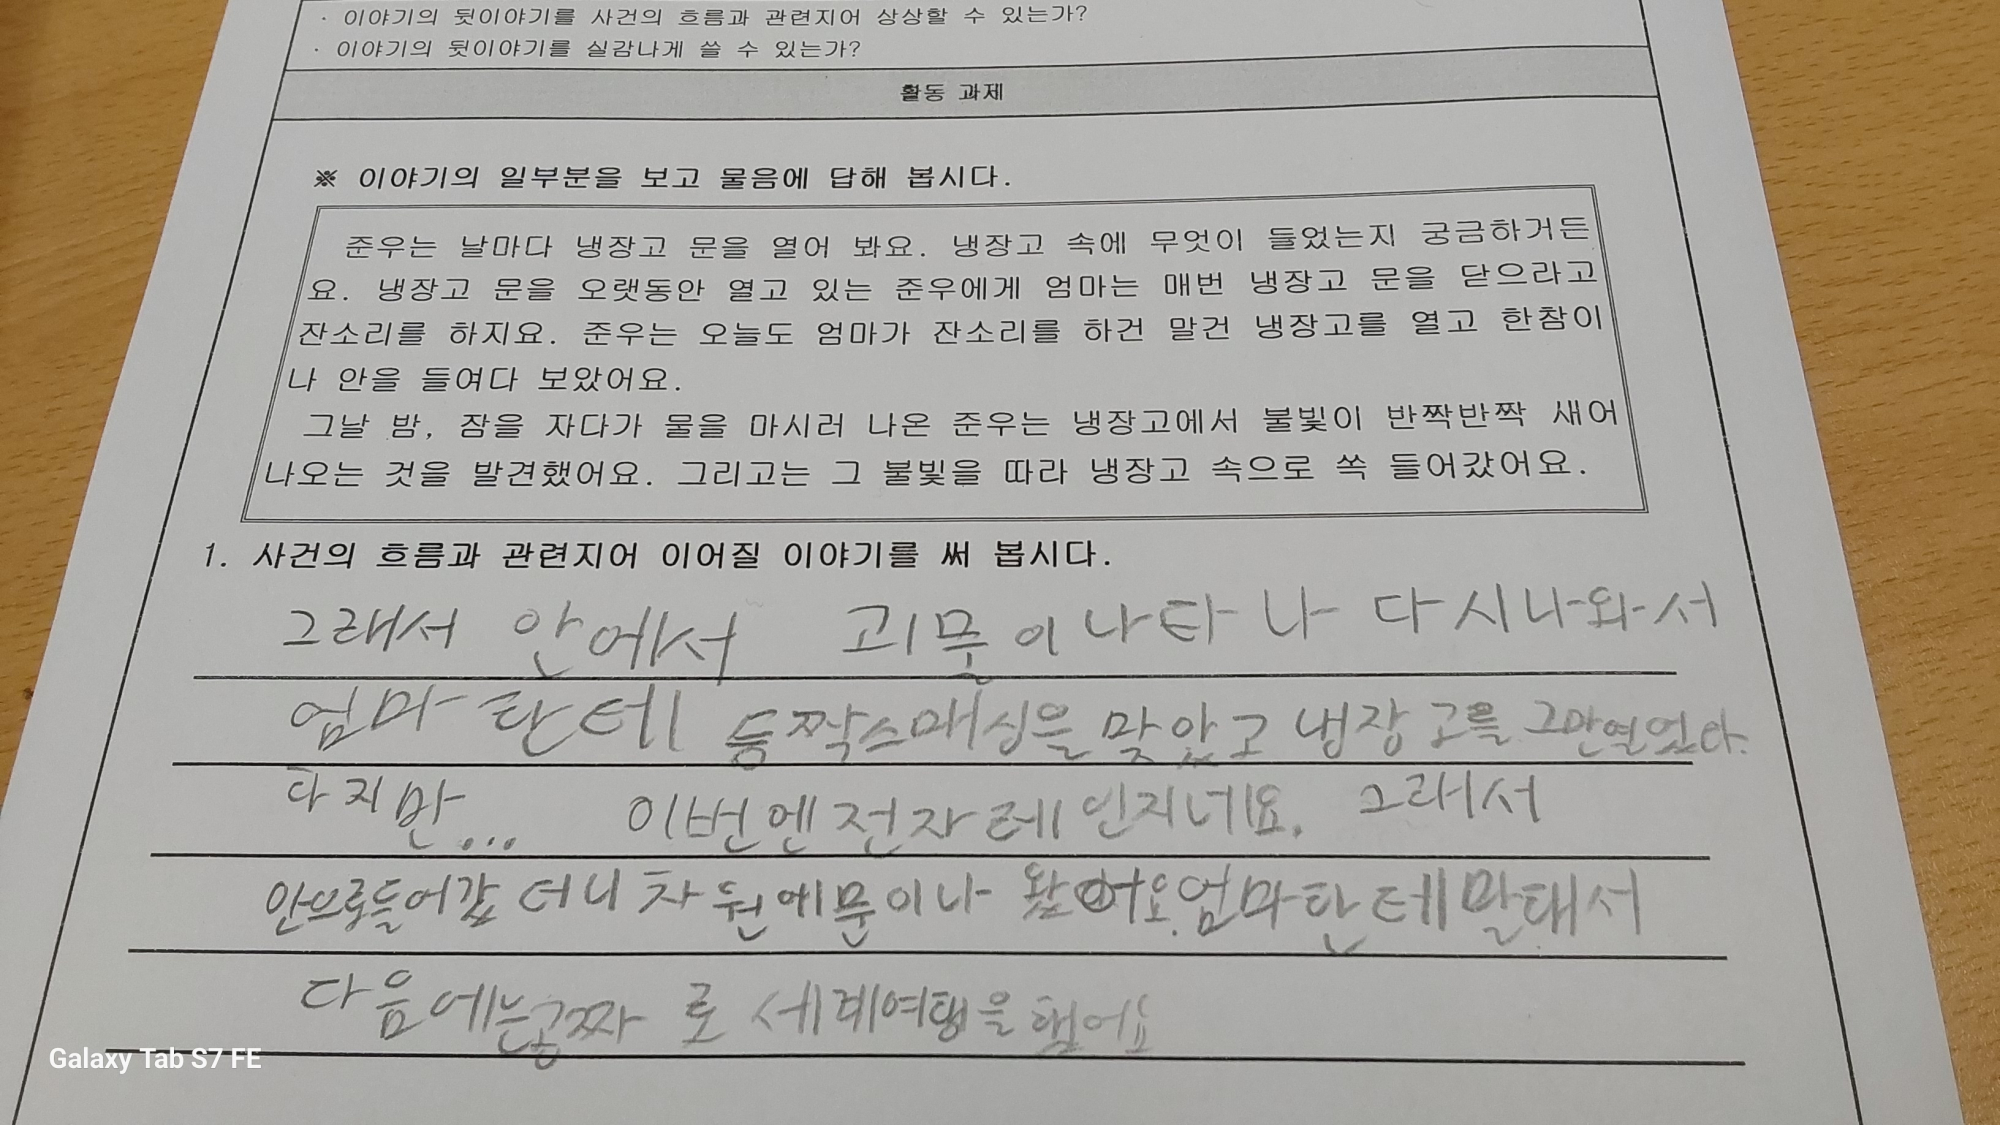 · 이야기의 뒷이야기를 사건의 흐름과 관련지어 상상할 수 있는가?
· 이야기의 뒷이야기를 실감나게 쓸 수 있는가?
활동 과제
※ 이야기의 일부분을 보고 물음에 답해 봅시다.
준우는 날마다 냉장고 문을 열어 봐요. 냉장고 속에 무엇이 들었는지 궁금하거든
요. 냉장고 문을 오랫동안 열고 있는 준우에게 엄마는 매번 냉장고 문을 닫으라고
잔소리를 하지요. 준우는 오늘도 엄마가 잔소리를 하건 말건 냉장고를 열고 한참이
나 안을 들여다 보았어요.
그날 밤, 잠을 자다가 물을 마시러 나온 준우는 냉장고에서 불빛이 반짝반짝 새어
나오는 것을 발견했어요. 그리고는 그 불빛을 따라 냉장고 속으로 쏙 들어갔어요.
1. 사건의 흐름과 관련지어 이어질 이야기를 써 봅시다.
그래서 안에서 괴물이 나타나 다시 나와서
엄마 란테 등짝스매싱을 맞았고 냉장고를 그만열었다.
다지만... 이번엔 전자레인지네요. 그래서
안으로들어갔더니 차원에문이나 왔어요. 엄마란테 말해서
다음에는공짜로 세계여행을 했어요
Galaxy Tab S7 FE